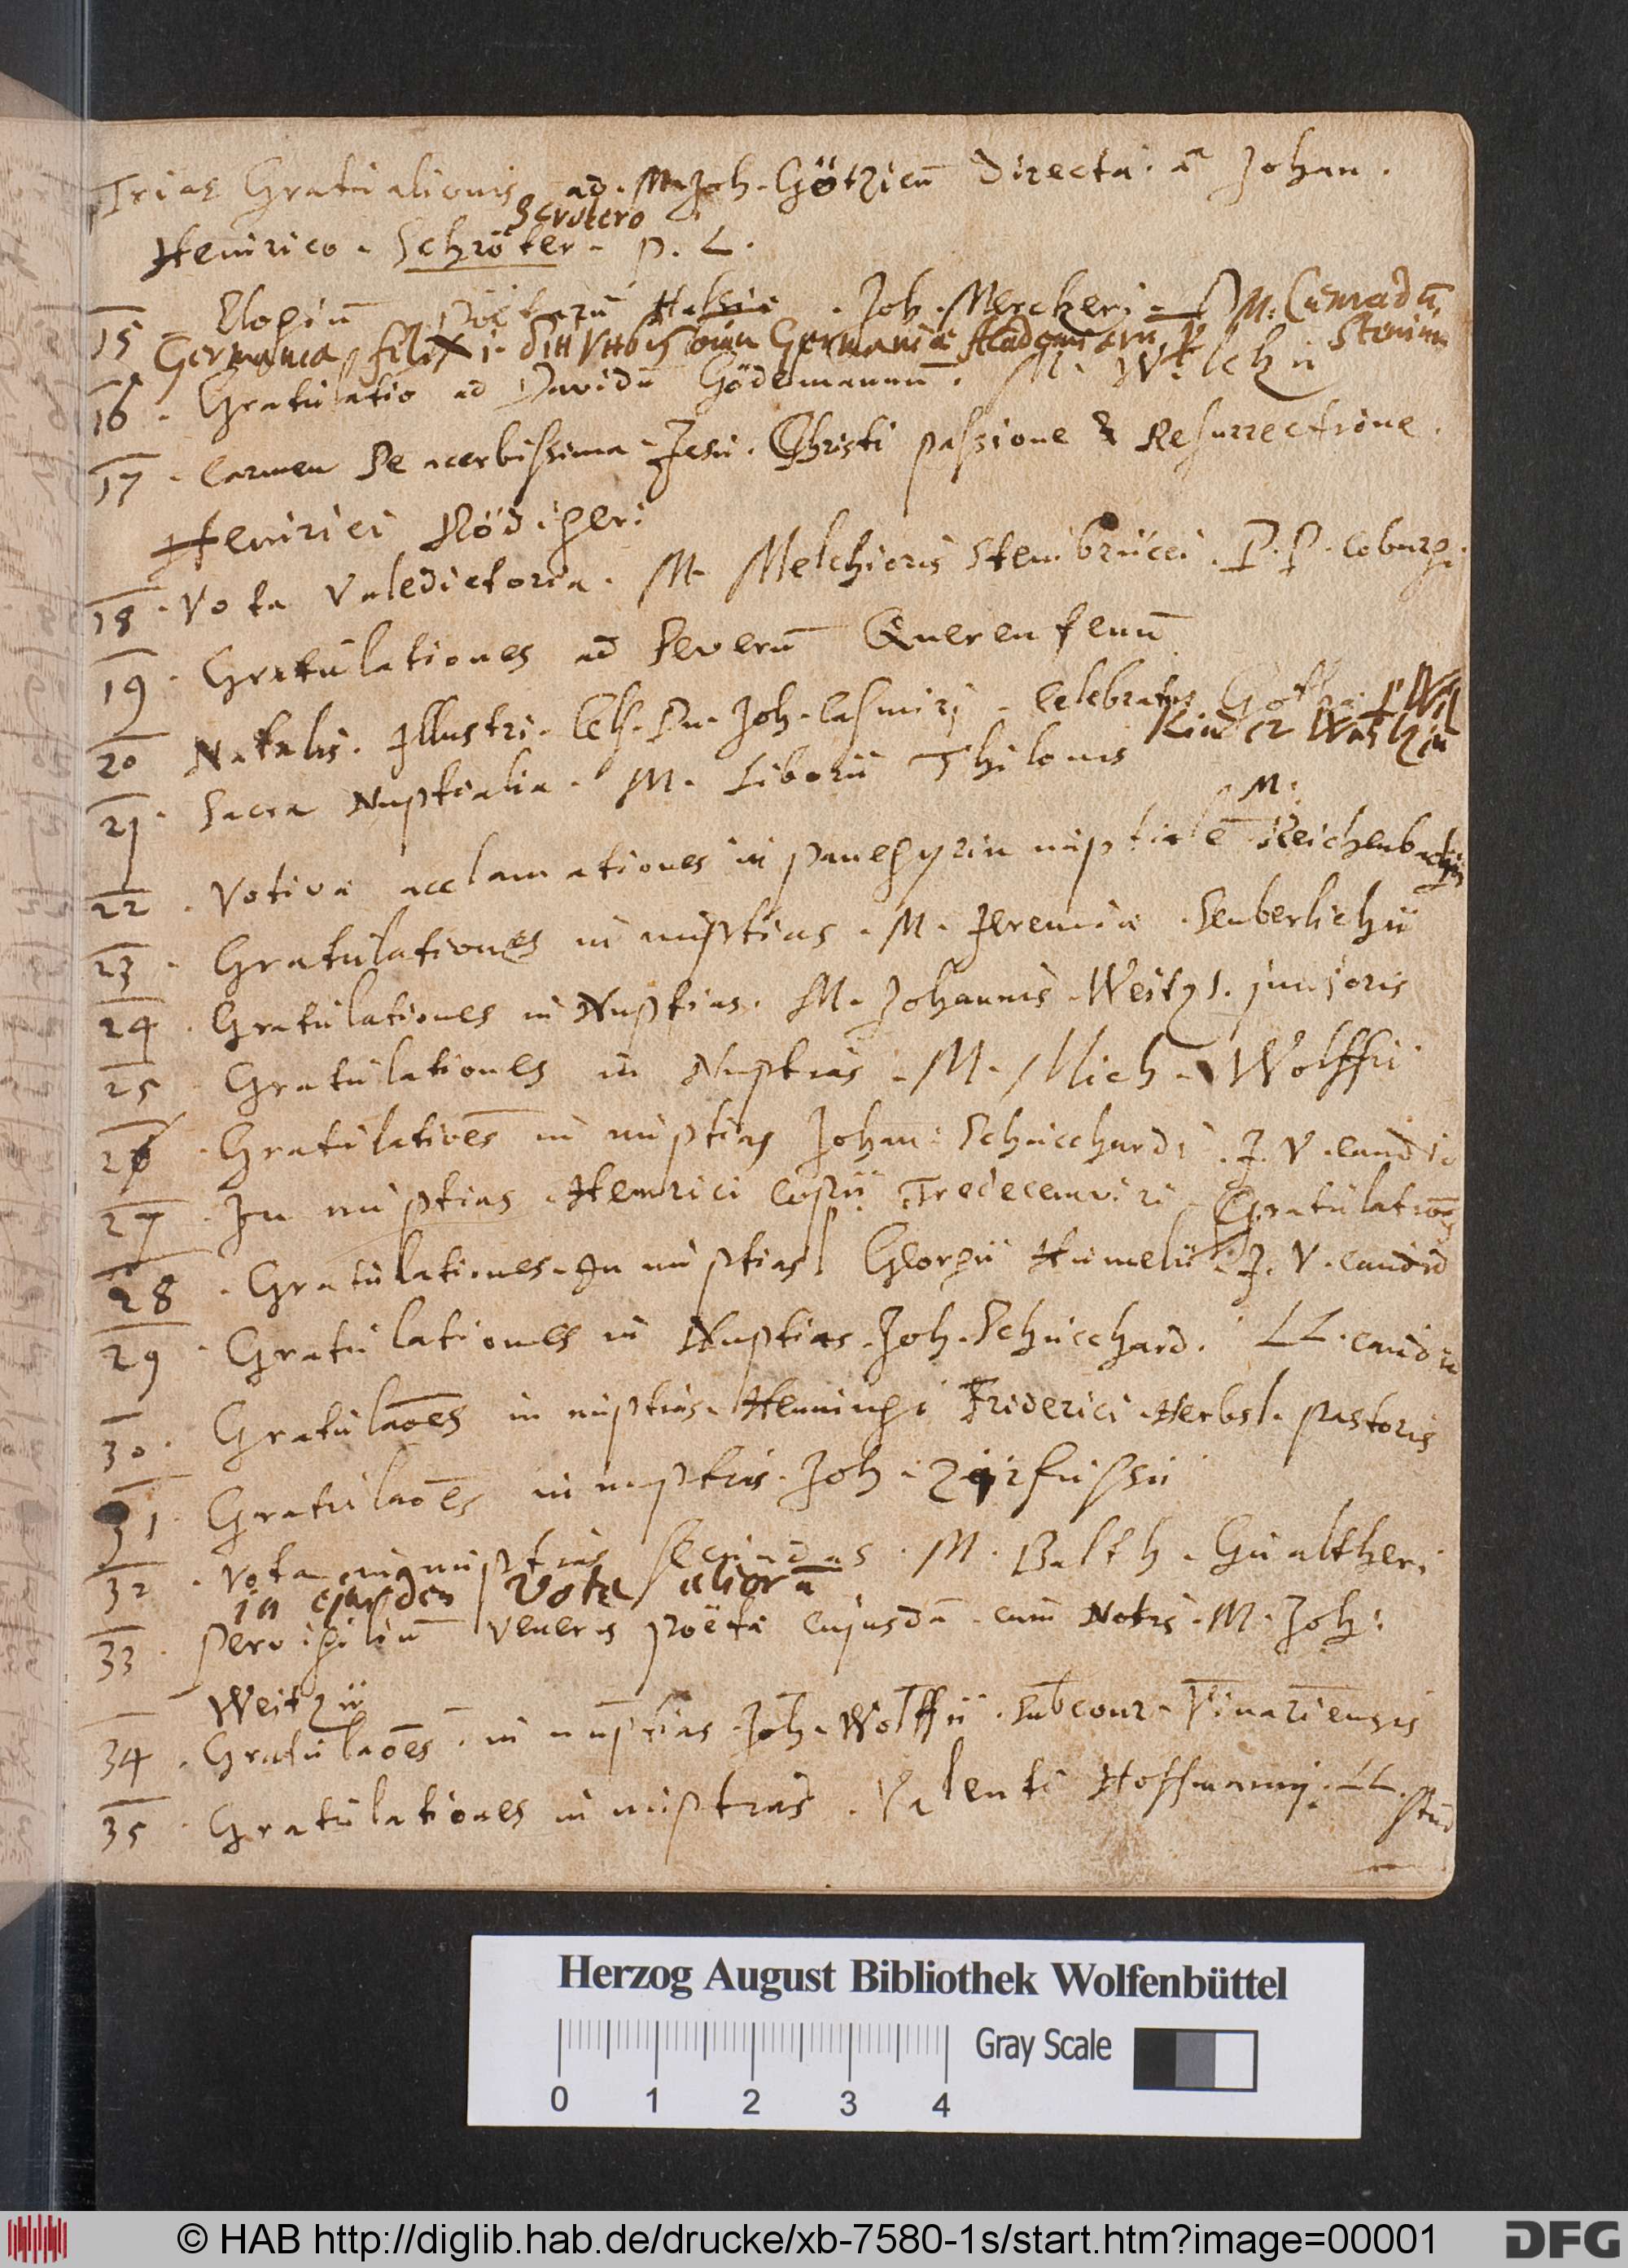 Trias Gratulationis ad. M. Joh. Götzium Directa. a Johan.
Scrotero
Heinrico. Schröter. p. L.
15 Elogiū Poëtarū Joh. Merckeri. M. Cunradū
Germania felix i. Academiarū
16. Gratulatio ad Davidē Gödemannū. M.
17. Carmen De acerbissima Jesu. Christi passione & Resurrectione.
Heinrici Rödigeri
18. Vota Valedictoria. M. Melchioris Steinbrücci. P. P. Coburgi.
19. Gratulationes ad Severū Querentenū
20 Natalis. Illustri. Cels. Dn. Joh. Casimirj. Celebratus Gothæ
21. Sacra Nuptialia. M. Liborii Thilonis
M:
22. Votivæ acclamationes in panegyrin nuptialē Reichenbachij
23. Gratulationes in nuptias. M. Jeremiæ. Seuberlichii
24. Gratulationes in Nuptias. M. Johannis. Weitzi. junioris
25 Gratulationes in Nuptias. M. Mich. Wolffii
26. Gratulatioēs in nuptias Johan: Schucchardi. J. V. candid
27. In nuptias. Heinrici Tredecemviri. Gratulatiōes
28. Gratulationes. In nuptias Georgii Humelii. J. V. candid
29. Gratulationes in Nuptias. Joh. Schucchard. LL. candid
30. Gratulaōes in nuptias. Henningi Friderici. Herbst. pastoris
31. Gratulaōes in nuptias. Joh. Zirfussii
32. Vota in nuptias secundas. M. Balth. Gualtheri
in easdem Vota aliorū
33. Pervigiliū Veneris poëtæ cujusdā. cum Notis. M. Joh:
Weitzii
34. Gratulaōes. in nuptias Joh. Wolffii. Subconr. Vinariensis
35. Gratulationes in nuptias. Valenti Hoffmannj. LL. stud
Herzog August Bibliothek Wolfenbüttel
Gray Scale
0 1 2 3 4
© HAB http://diglib.hab.de/drucke/xb-7580-1s/start.htm?image=00001
DFG